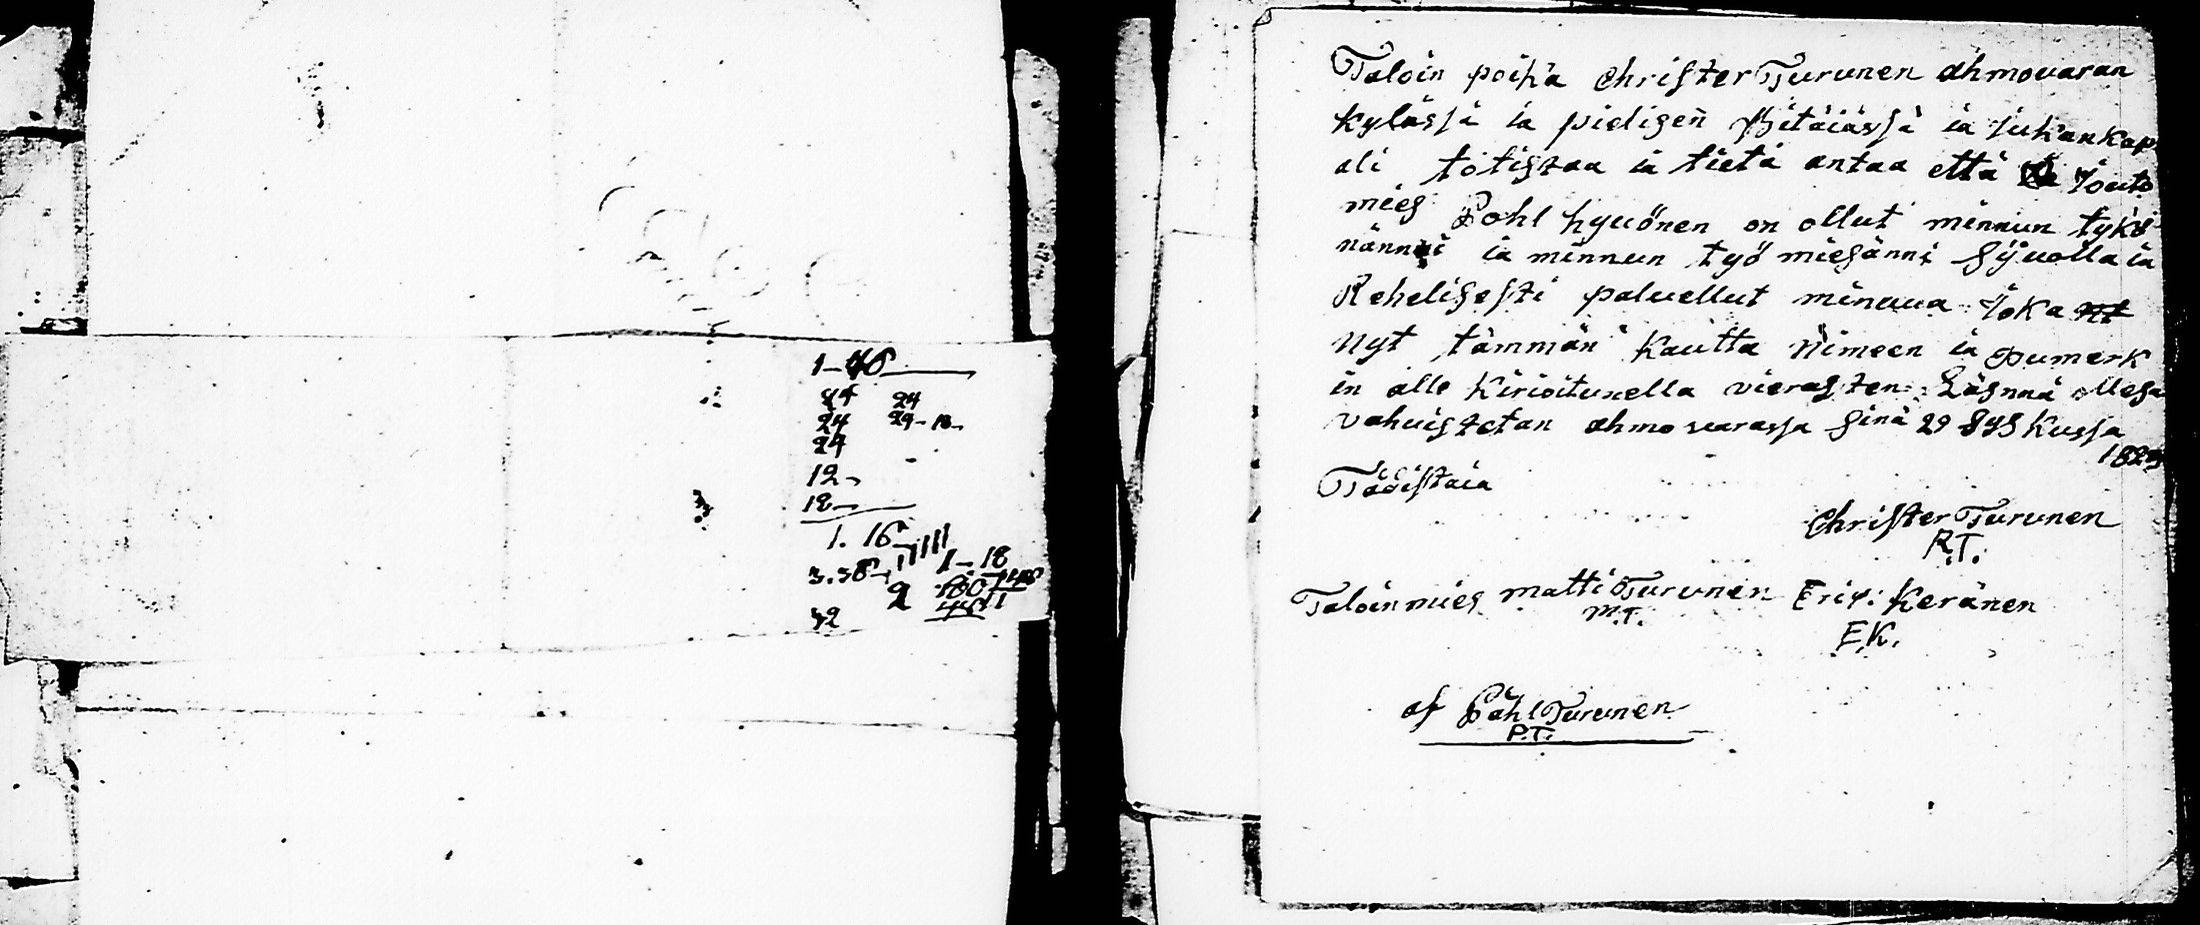 1-48
24 24
24 29-18-
24
12-
18-
1. 16
3.58 1-18
2
32
Taloin poika Christer Turunen ahmovaran
kylässä ia pielisen Pitäiässä ia Jukankap
ali totistaa ia tietä antaa että Jouto
mies Pohl hyuönen on ollut minnun tykö
nännii ia minnun työ miesänni Syuolla ia
Rehelisesti paluellut minuua Joka
nyt tämmän kautta nimeen ia pumerk
in alle Kirioitunella vierasten Läsnnä ollesa
vahvistetan ahmovarassa Sinä 29 Sys Kussa
Tädistaia
Christer Turunen
R.T.
Taloin mies matti Turunen Eric: Keränen
M.T.
E.K.
af Påhl Turunen
P.T.